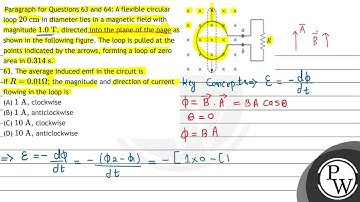 Paragraph for Questions 63 and 64: A flexible circular
loop 20 cm in diameter lies in a magnetic field with
magnitude 1.0 T, directed into the plane of the page as
shown in the following figure. The loop is pulled at the
points indicated by the arrows, forming a loop of zero
area in 0.314 s.
63. The average induced emf in the circuit is
If R = 0.01Ω; the magnitude and direction of current
flowing in the loop is
(A) 1 A, clockwise
(B) 1 A, anticlockwise
(C) 10 A, clockwise
(D) 10 A, anticlockwise
R
A⃗ B⃗
Key Concepts ⇒ Ɛ = -dϕ/dt
ϕ = B⃗ . A⃗ = BA cosθ
θ = 0
ϕ = BA
⇒ Ɛ = -dϕ/dt = -(ϕ2 - ϕ1)/dt = -[1×0 - [1
PW